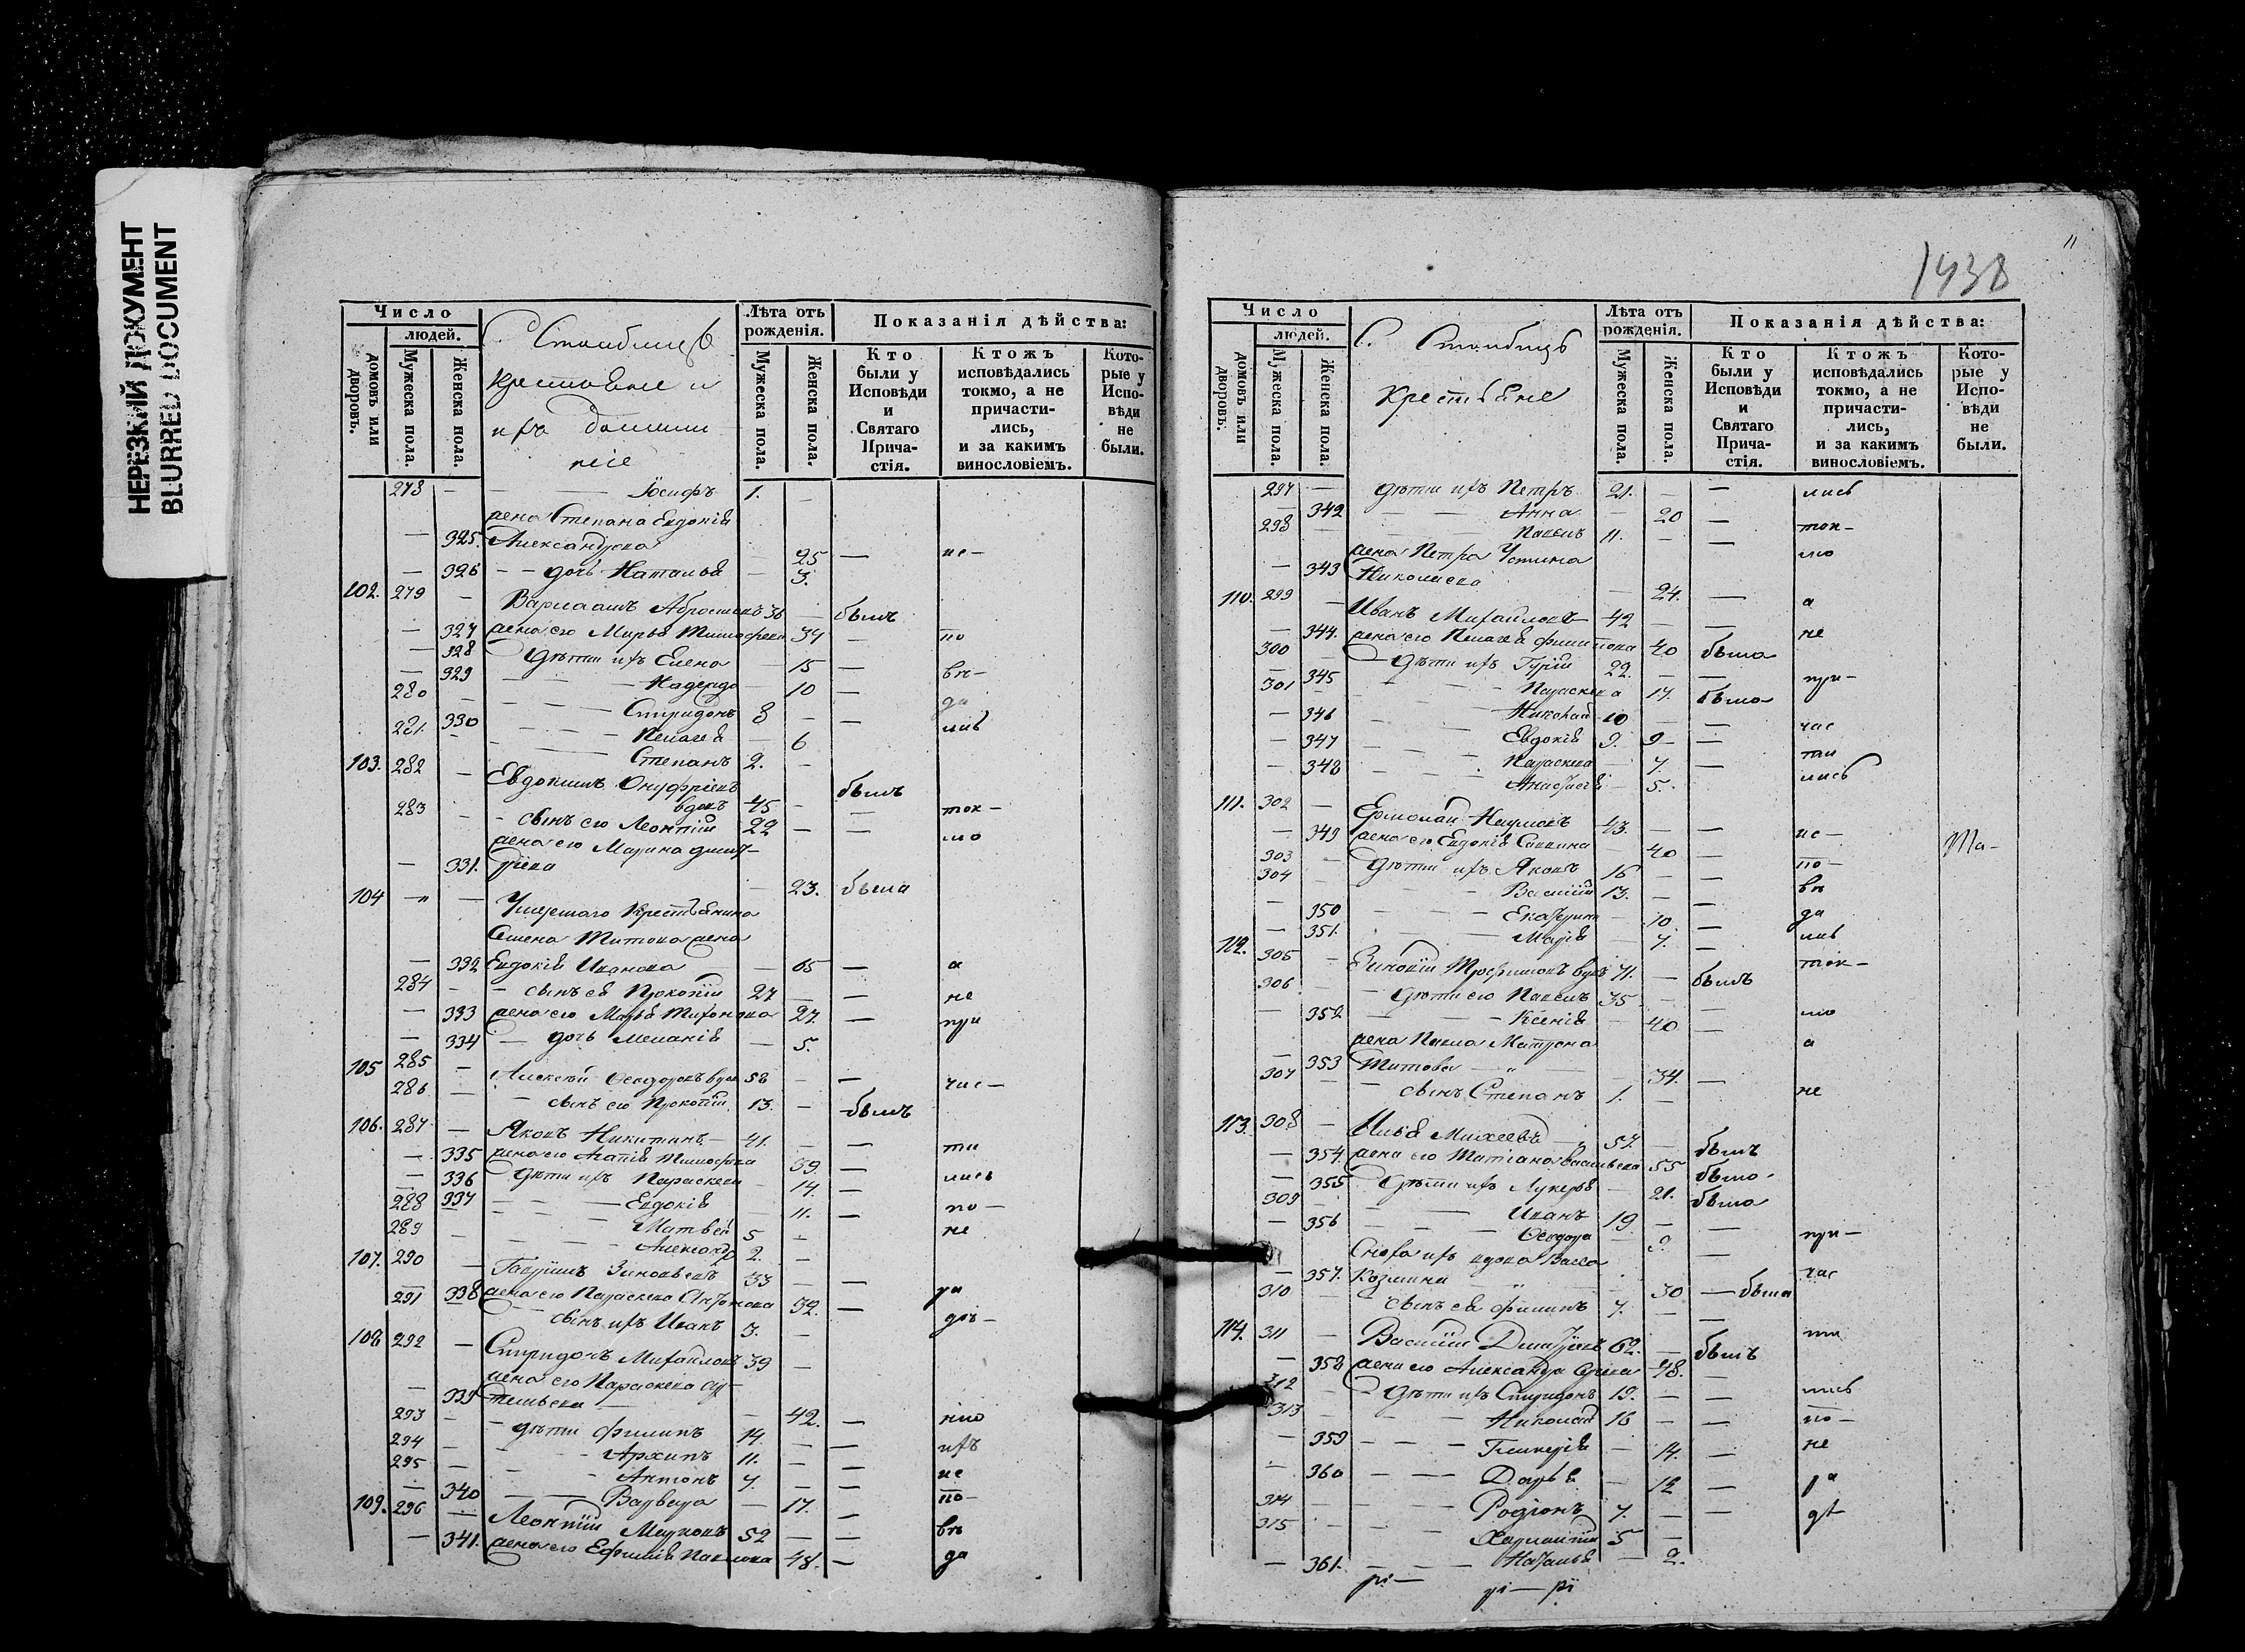 НЕРЕЗКИЙ ДОКУМЕНТ
BLURRED DOCUMENT
Число
людей.
домовъ или дворовъ.
Мужеска пола.
Женска пола.
С.
Крестьяне и
ихъ домаш
ніе
Лѣта отъ рожденія.
Мужеска пола.
Женска пола.
Показанія дѣйства:
Кто были у Исповѣди и Святаго Прича- стія.
Ктожъ исповѣдались токмо, а не причасти- лись, и за какимъ винословіемъ.
Кото- рые у Испо- вѣди не были.
278 — — Іосифъ 1. —
жена Степана Евдокія
— 325. Александрова — 25 — ис—
— 326 — — дочь Наталья — 3.
102. 279 — Варлаамъ Абросимовъ 36 — былъ
— 327 жена его Марья Тимофеева 34 — по
— 328 дѣти ихъ Елена — 15 —
— 329 — Надежда — 10 — вѣ—
280 — Спиридонъ 8 — — да
— 330 — Пелагея — 6 лись
281 — Степанъ 2. —
103. 282 — Евдокимъ Онуфріевъ
вдовъ 45 — былъ
283 — сынъ его Леонтій 22 — — ток—
жена его Марина Дмит— мо
— 331. ріева — 23. была
104 — — Умершаго Крестьянина
Семена Титова жена
— 332 Евдокія Иванова — 65 — а
284 — сынъ ея Прокопій 27 — — не
— 333 жена его Марья Тихонова 27. — при
— 334 — дочь Меланія — 5.
105 285 — Алексѣй Ѳеодоровъ вдов 58 — — час—
286 — сынъ его Прокопій 13. — былъ
106. 287 — Яковъ Никитинъ — 41. — — ти
— 335 жена его Агапія Тимофеева 39. — лись
— 336 дѣти ихъ Параскева — 14. —
— 337 — Евдокія — 11. — по—
288 — Матвѣй 5 — не
289 — Александр 2. —
107. 290 — Гавріилъ Зиновьевъ 33 — —
— 338 жена его Параскева Антонова 32. — ра
291 — сынъ ихъ Иванъ 3. — дѣ—
108 292 — Спиридонъ Михайловъ 39 —
жена его Параскева Са—
— 339 вельева — — 42. — нію
293 — дѣти Филипъ 14. — — ихъ
294 — Архипъ 11. — — ис
295 — Антонъ 7. — —
— 340 — Варвара — 17. — по—
109. 296 — Леонтій Марковъ 52 — — вѣ
— 341. жена его Ефимія Павлова 48. — да
1438
11
Число
людей.
домовъ или дворовъ.
Мужеска пола.
Женска пола.
С.
Крестьяне
Лѣта отъ рожденія.
Мужеска пола.
Женска пола.
Показанія дѣйства:
Кто были у Исповѣди и Святаго Прича- стія.
Ктожъ исповѣдались токмо, а не причасти- лись, и за какимъ винословіемъ.
Кото- рые у Испо- вѣди не были.
297 — дѣти ихъ Петръ 21. — — лись
— 342 — Анна — 20 — ток—
298 — Павелъ 11. — —
жена Петра Устина мо
— 343 Николаева — 24. —
110. 299 — Иванъ Михайловъ 42 — — а
— 344. жена его Пелагея Филиппова 40 была не
300 — дѣти ихъ Гурій 22. — —
— 345 — Параскева 17. была при—
301 — Николай 10 — —
— 346 — Евдокія 9. 9 — час
— 347 — Параскева — 7. — ти
— 348 — Анастасія — 5. лись
111. 302 — Ермолай Наумовъ 43. — — ис—
— 349 жена его Евдокія Саввина — 40 —
303 — дѣти ихъ Яковъ 16 — — по—
304 — Василій 13. — — вѣ
— 350 — Екатерина — 10 — да
— 351. — Марія — 7. — лись
112. 305 — Зиновій Трофимовъ вдов 71. — былъ ток—
306 — дѣти его Павелъ 35 — —
— 352 — Ксенія — 40 — мо
жена Павла Матрона а
— 353 Титова — 34. —
307 — сынъ Степанъ 1. — не
113. 308 — Илья Михеевъ — 57. — былъ
— 354. жена его Татіана Васильева 55 была
— 355 дѣти ихъ Лукерья — 21. была
309 — Иванъ 19 — —
— 356 — Ѳеодора — 9. — при—
Сноха ихъ вдова Васса
— 357. Козмина — 30 — была час
310 — сынъ ея Филипъ 7. — —
114. 311 — Василій Дмитріевъ 62. — былъ ти
— 358 жена его Александра 48. —
312 — дѣти ихъ Спиридонъ 19. — — лись
313 — Николай 16 — — по—
— 359 — Гликерія — 14. — не
— 360 — Дарья — 12 — ра
314 — Родіонъ 7. — — дѣ
315 — Харлампій 5 —
— 361. — Наталья — 2.